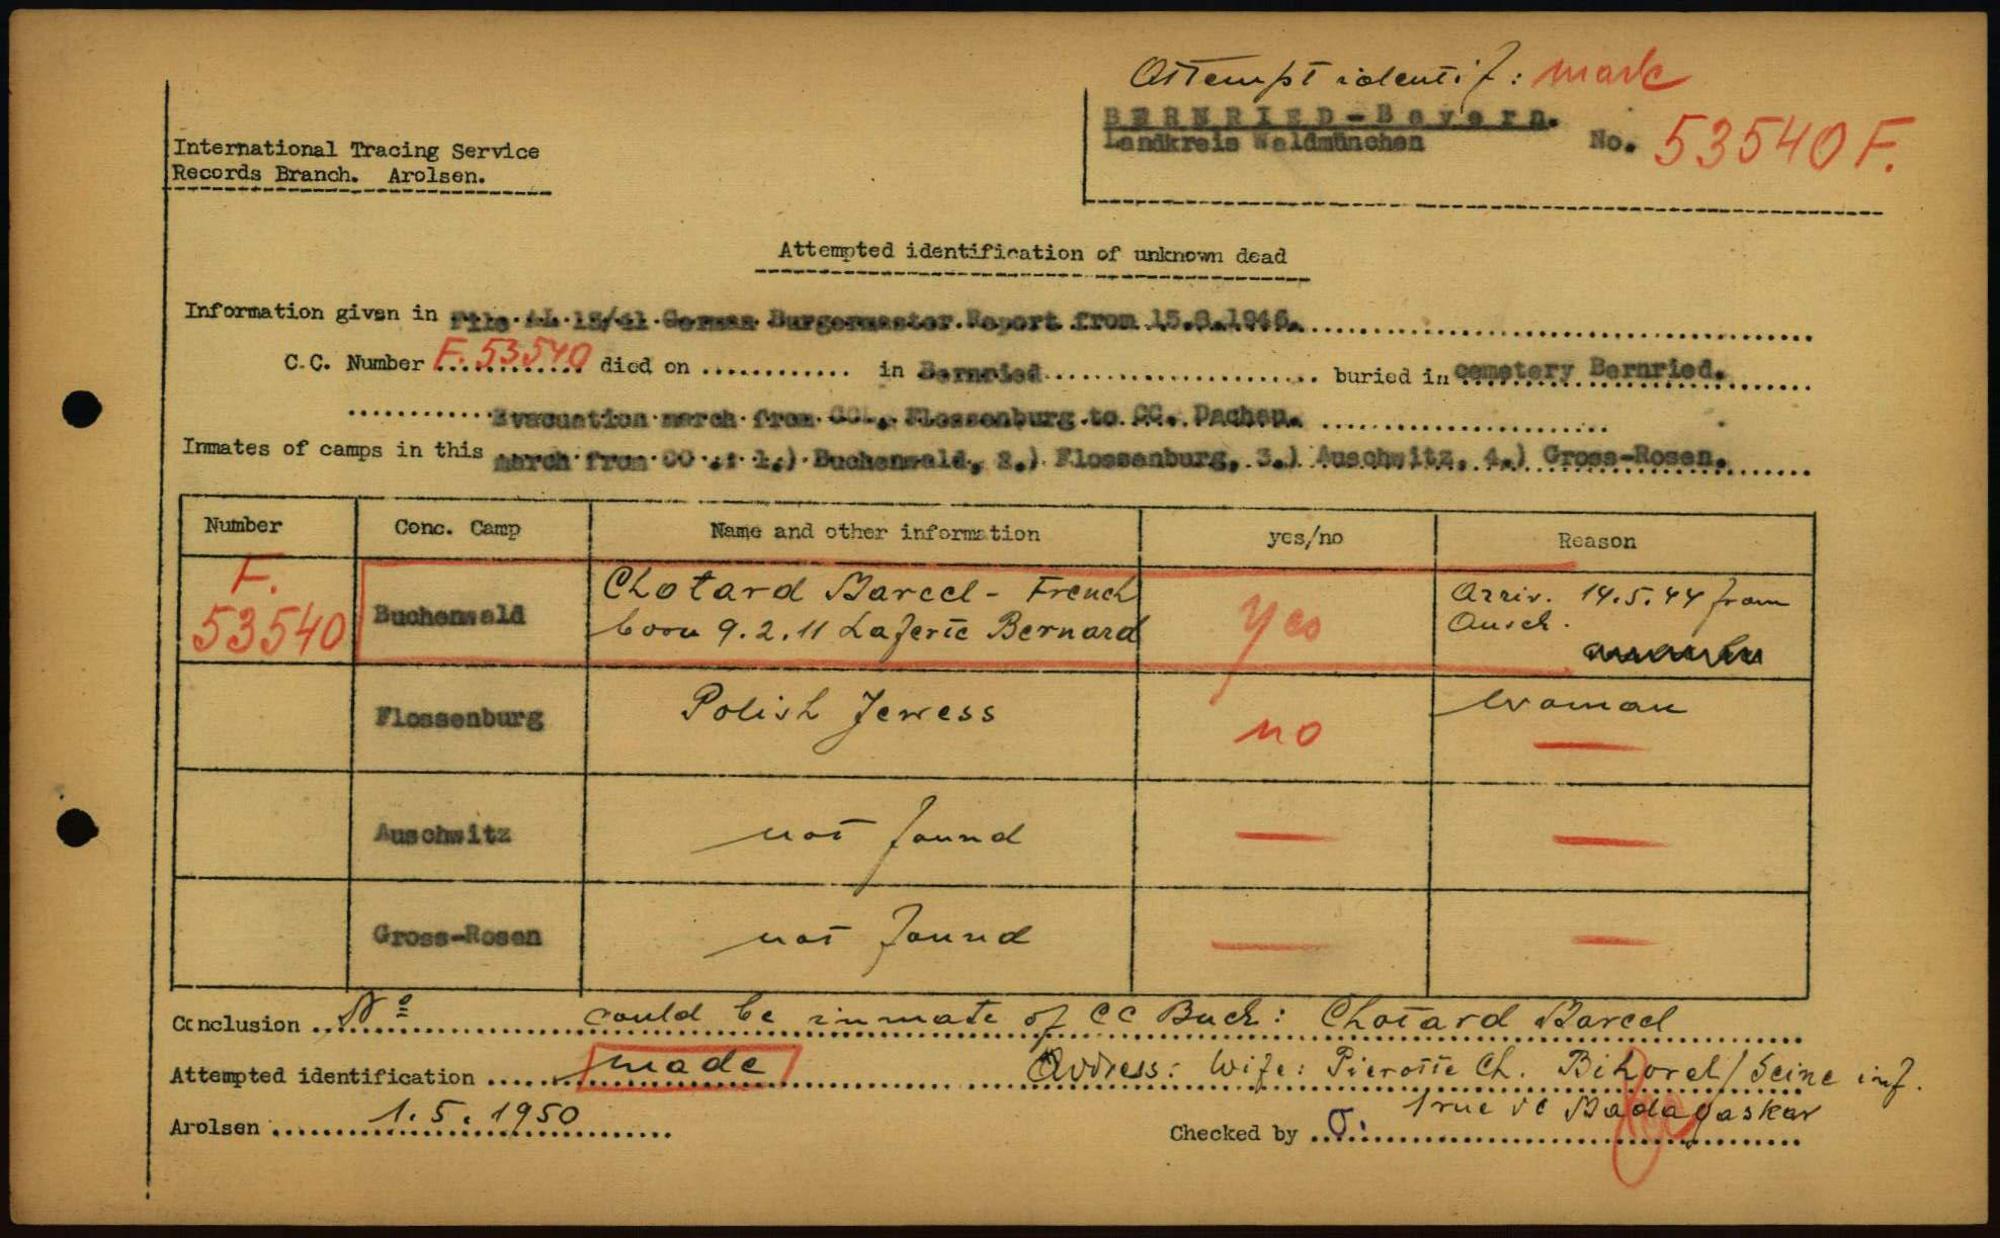 Attempt identif: made
BERNRIED-Bayern.
Landkreis Waldmünchen No. 53540 F.
International Tracing Service
Records Branch. Arolsen.
Attempted identification of unknown dead
Information given in File AL 15/41 German Burgermaster Report from 15.8.1946.
C.C. Number F. 53540 died on ............ in Bernried buried in cemetery Bernried.
Evacuation march from CCL. Flossenburg to CC. Dachau.
Inmates of camps in this march from CC .: 1.) Buchenwald, 2.) Flossenburg, 3.) Auschwitz, 4.) Gross-Rosen.
Number Conc. Camp Name and other information yes/no Reason
F. 53540 Buchenwald Chotard Marcel - French yes Arriv. 14.5.44 from
born 9.2.11 Laferté Bernard Ausch.
Flossenburg Polish Jewess no Woman
Auschwitz not found — —
Gross-Rosen not found — —
Conclusion Nº could be inmate of CC Buch: Chotard Marcel
Attempted identification made Address: Wife: Pierotte Ch. Bihorel/Seine inf.
1 rue de Madagaskar
Arolsen 1.5.1950 Checked by